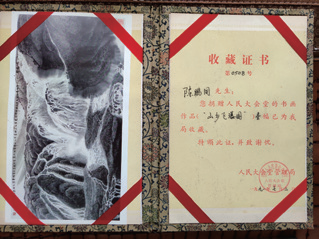 收藏证书
第0508号
陈鹏同 先生:
您捐赠人民大会堂的书画
作品:"山乡飞瀑图"壹幅已为我
局收藏。
特颁此证,并致谢忱。
人民大会堂管理局